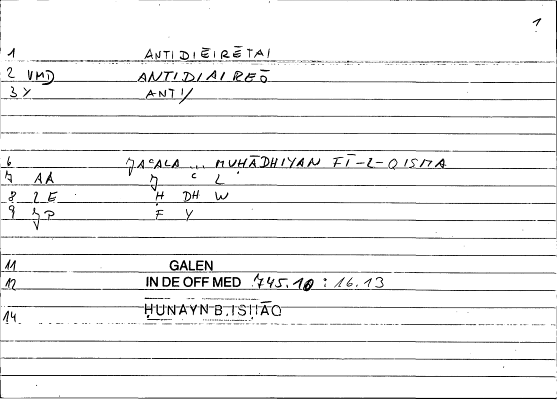 1
1 ANTIDIĒIRĒTAI
2 VMD ANTIDIAIREŌ
3 Y ANTI/
6 ǧAʿALA ... MUḤĀDHIYAN FĪ-L-QISMA
7 AA ǧ ʿ L
8 ZE Ḥ DH W
9 ǧP F Y
11 GALEN
12 IN DE OFF MED 745.10 : 16.13
14 ḤUNAYN B.ISḤĀQ